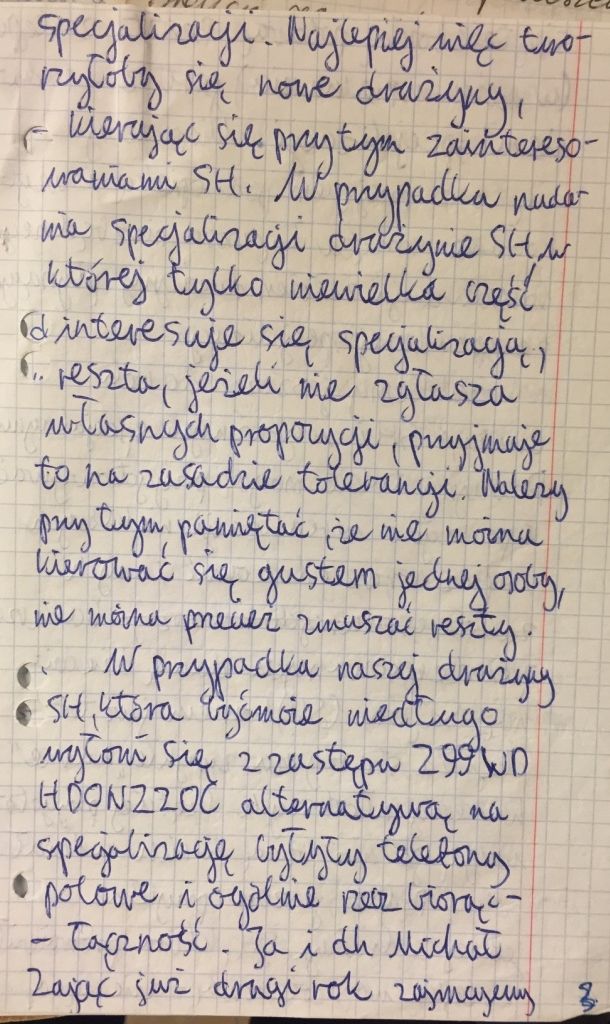 specjalizacji. Najlepiej więc two-
rzyłoby się nowe drużyny,
- kierując się przytym zaintereso-
waniami SH. W przypadku nada-
nia specjalizacji drużynie SH, w
której tylko niewielka część
interesuje się specjalizacją,
reszta, jeżeli nie zgłasza
własnych propozycji, przyjmuje
to na zasadzie tolerancji. Należy
przytym pamiętać, że nie można
kierować się gustem jednej osoby,
nie można przecież zmuszać reszty.
W przypadku naszej drużyny
SH, która byćmoże niedługo
wyłoni się z zastępu 299 WD
HDONZZOC alternatywą na
specjalizację byłyby telefony
polowe i ogólnie rzecz biorąc-
- łączność. Ja i dh Michał
Zając już drugi rok zajmujemy